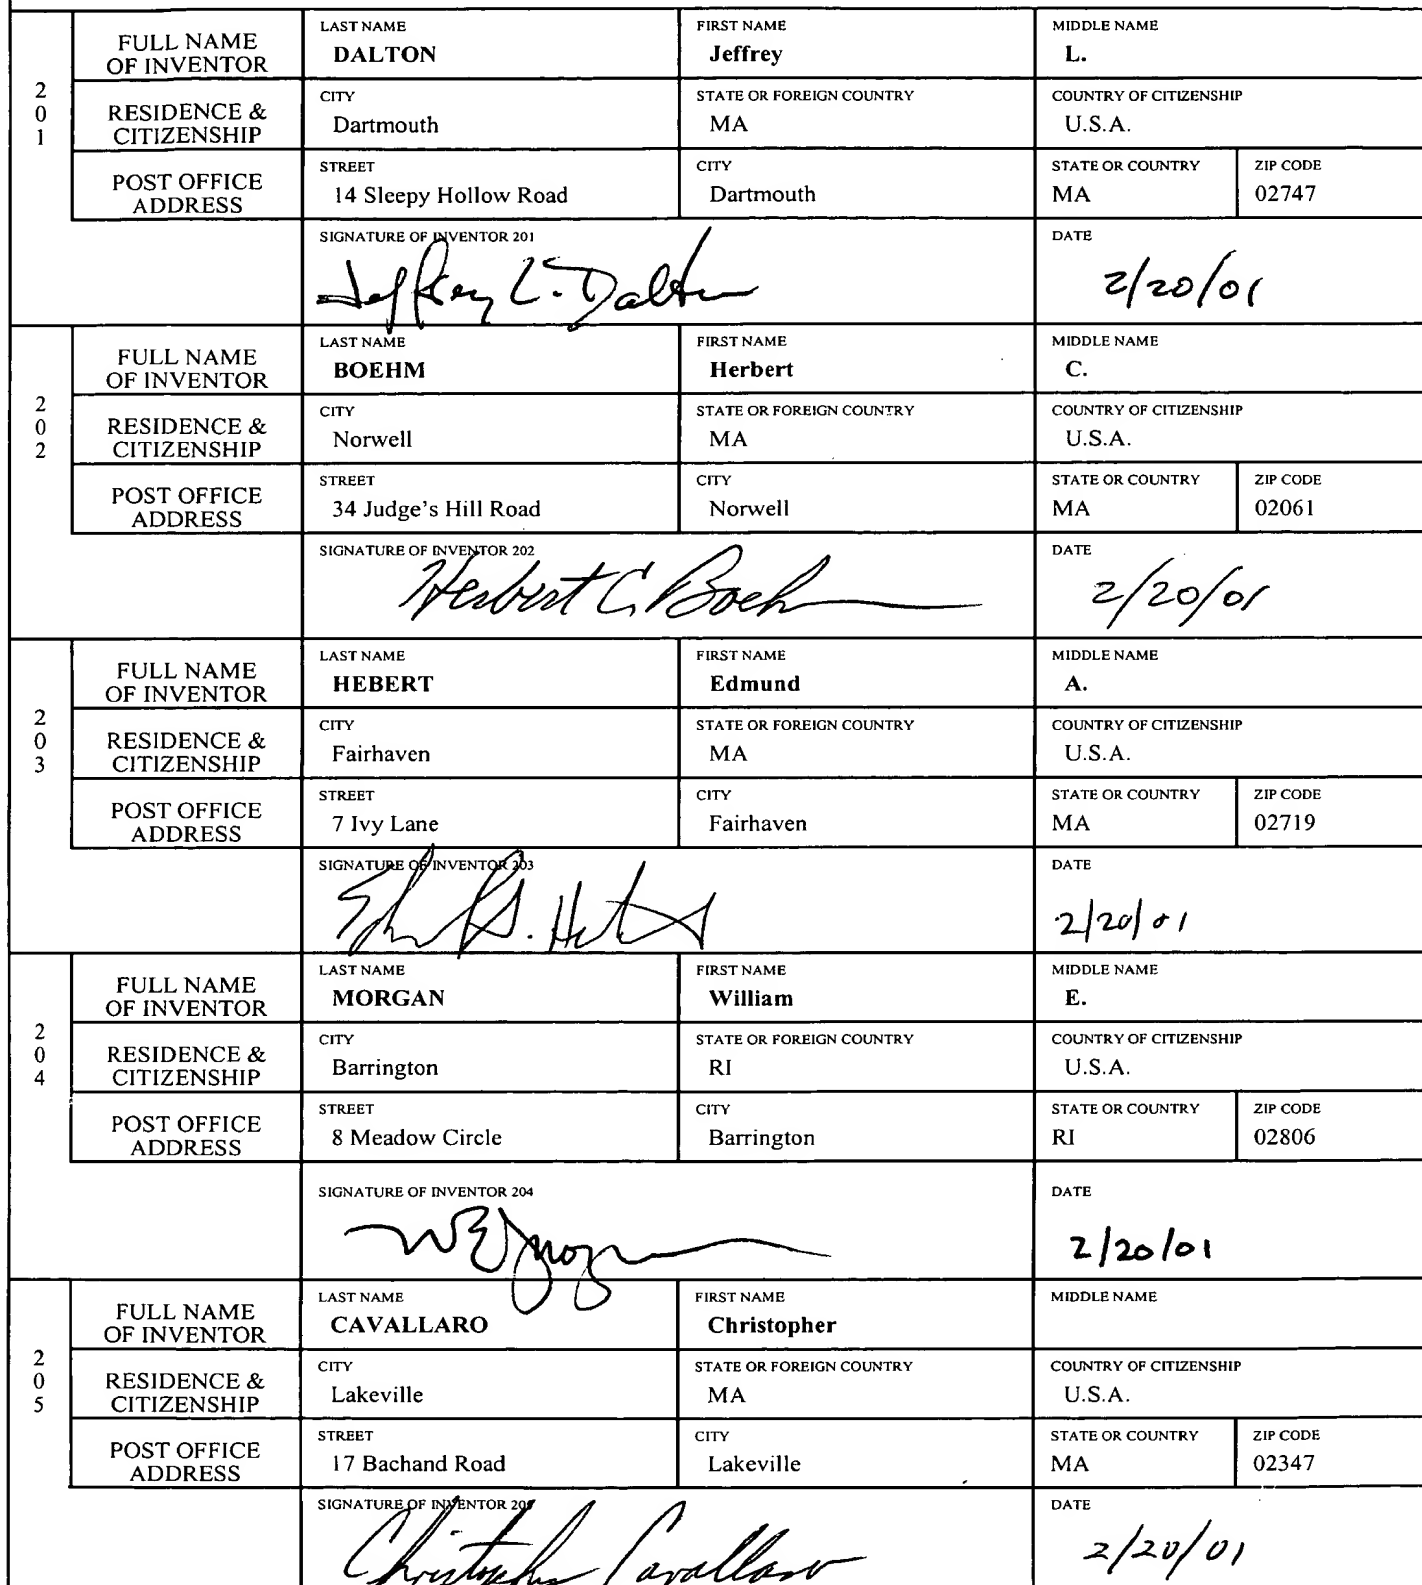 201
FULL NAME OF INVENTOR
LAST NAME DALTON
FIRST NAME Jeffrey
MIDDLE NAME L.
RESIDENCE & CITIZENSHIP
CITY Dartmouth
STATE OR FOREIGN COUNTRY MA
COUNTRY OF CITIZENSHIP U.S.A.
POST OFFICE ADDRESS
STREET 14 Sleepy Hollow Road
CITY Dartmouth
STATE OR COUNTRY MA
ZIP CODE 02747
SIGNATURE OF INVENTOR 201
Jeffrey L. Dalton
DATE 2/20/01
202
FULL NAME OF INVENTOR
LAST NAME BOEHM
FIRST NAME Herbert
MIDDLE NAME C.
RESIDENCE & CITIZENSHIP
CITY Norwell
STATE OR FOREIGN COUNTRY MA
COUNTRY OF CITIZENSHIP U.S.A.
POST OFFICE ADDRESS
STREET 34 Judge's Hill Road
CITY Norwell
STATE OR COUNTRY MA
ZIP CODE 02061
SIGNATURE OF INVENTOR 202
Herbert C. Boehm
DATE 2/20/01
203
FULL NAME OF INVENTOR
LAST NAME HEBERT
FIRST NAME Edmund
MIDDLE NAME A.
RESIDENCE & CITIZENSHIP
CITY Fairhaven
STATE OR FOREIGN COUNTRY MA
COUNTRY OF CITIZENSHIP U.S.A.
POST OFFICE ADDRESS
STREET 7 Ivy Lane
CITY Fairhaven
STATE OR COUNTRY MA
ZIP CODE 02719
SIGNATURE OF INVENTOR 203
DATE 2/20/01
204
FULL NAME OF INVENTOR
LAST NAME MORGAN
FIRST NAME William
MIDDLE NAME E.
RESIDENCE & CITIZENSHIP
CITY Barrington
STATE OR FOREIGN COUNTRY RI
COUNTRY OF CITIZENSHIP U.S.A.
POST OFFICE ADDRESS
STREET 8 Meadow Circle
CITY Barrington
STATE OR COUNTRY RI
ZIP CODE 02806
SIGNATURE OF INVENTOR 204
DATE 2/20/01
205
FULL NAME OF INVENTOR
LAST NAME CAVALLARO
FIRST NAME Christopher
MIDDLE NAME
RESIDENCE & CITIZENSHIP
CITY Lakeville
STATE OR FOREIGN COUNTRY MA
COUNTRY OF CITIZENSHIP U.S.A.
POST OFFICE ADDRESS
STREET 17 Bachand Road
CITY Lakeville
STATE OR COUNTRY MA
ZIP CODE 02347
SIGNATURE OF INVENTOR 205
Christopher Cavallaro
DATE 2/20/01